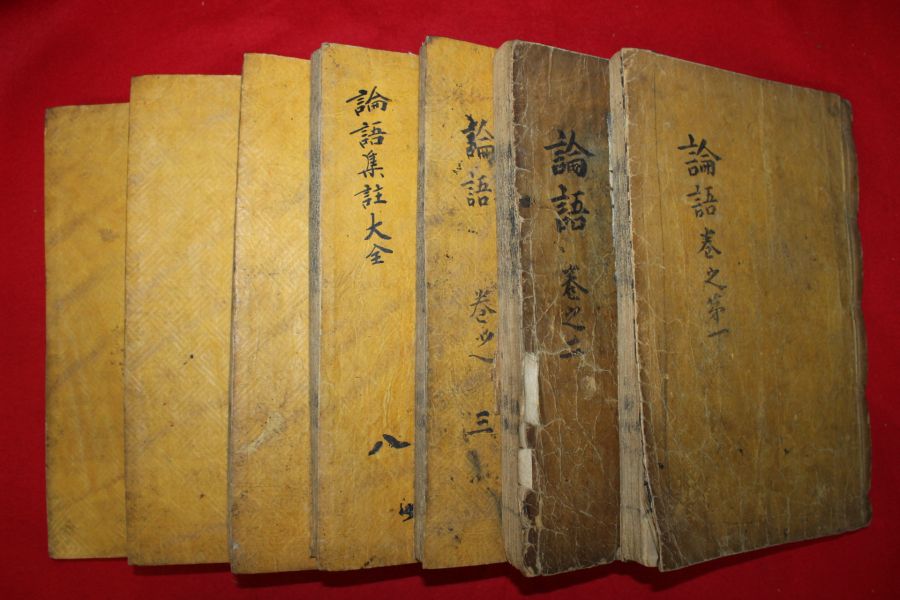 論語 巻之第一
論語 巻之二
論語 巻之 三
論語集註大全 八